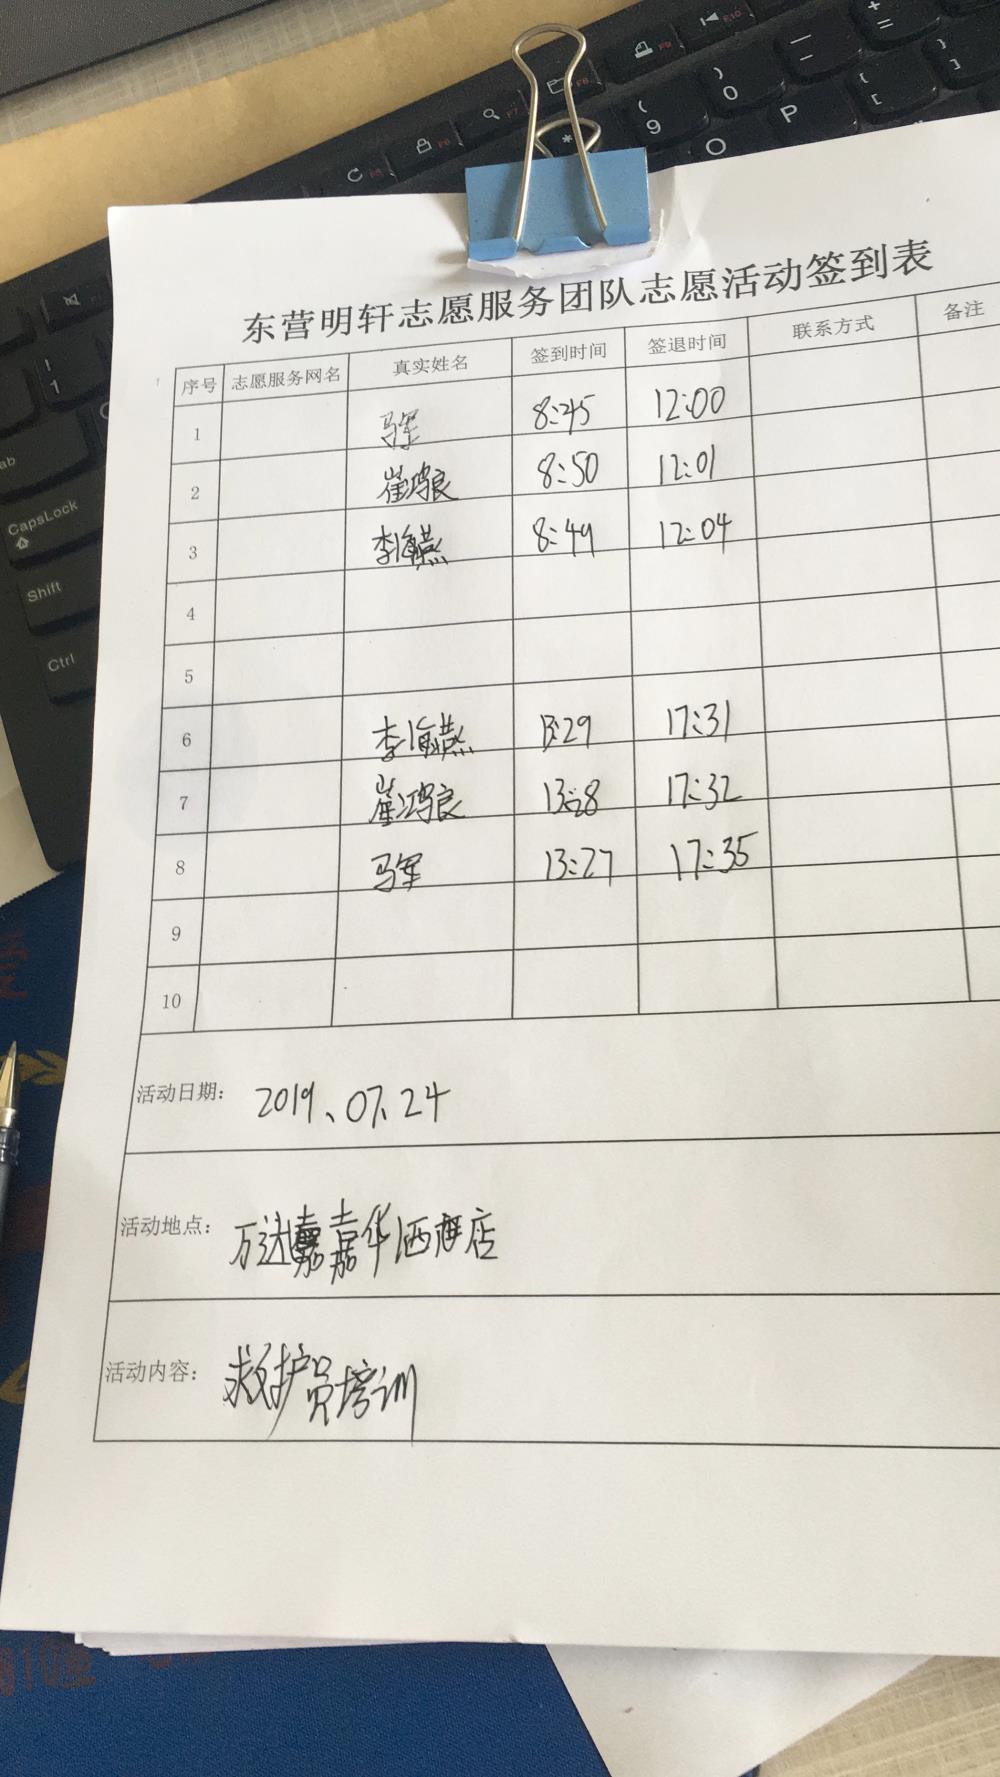 东营明轩志愿服务团队志愿活动签到表
序号 志愿服务网名 真实姓名 签到时间 签退时间 联系方式 备注
1 马军 8:45 12:00
2 崔鸿良 8:50 12:01
3 李海燕 8:49 12:04
4
5
6 李海燕 13:29 17:31
7 崔鸿良 13:28 17:32
8 马军 13:27 17:35
9
10
活动日期: 2019、07、24
活动地点: 万达嘉华酒店
活动内容: 救护员培训
CapsLock
Shift
Ctrl